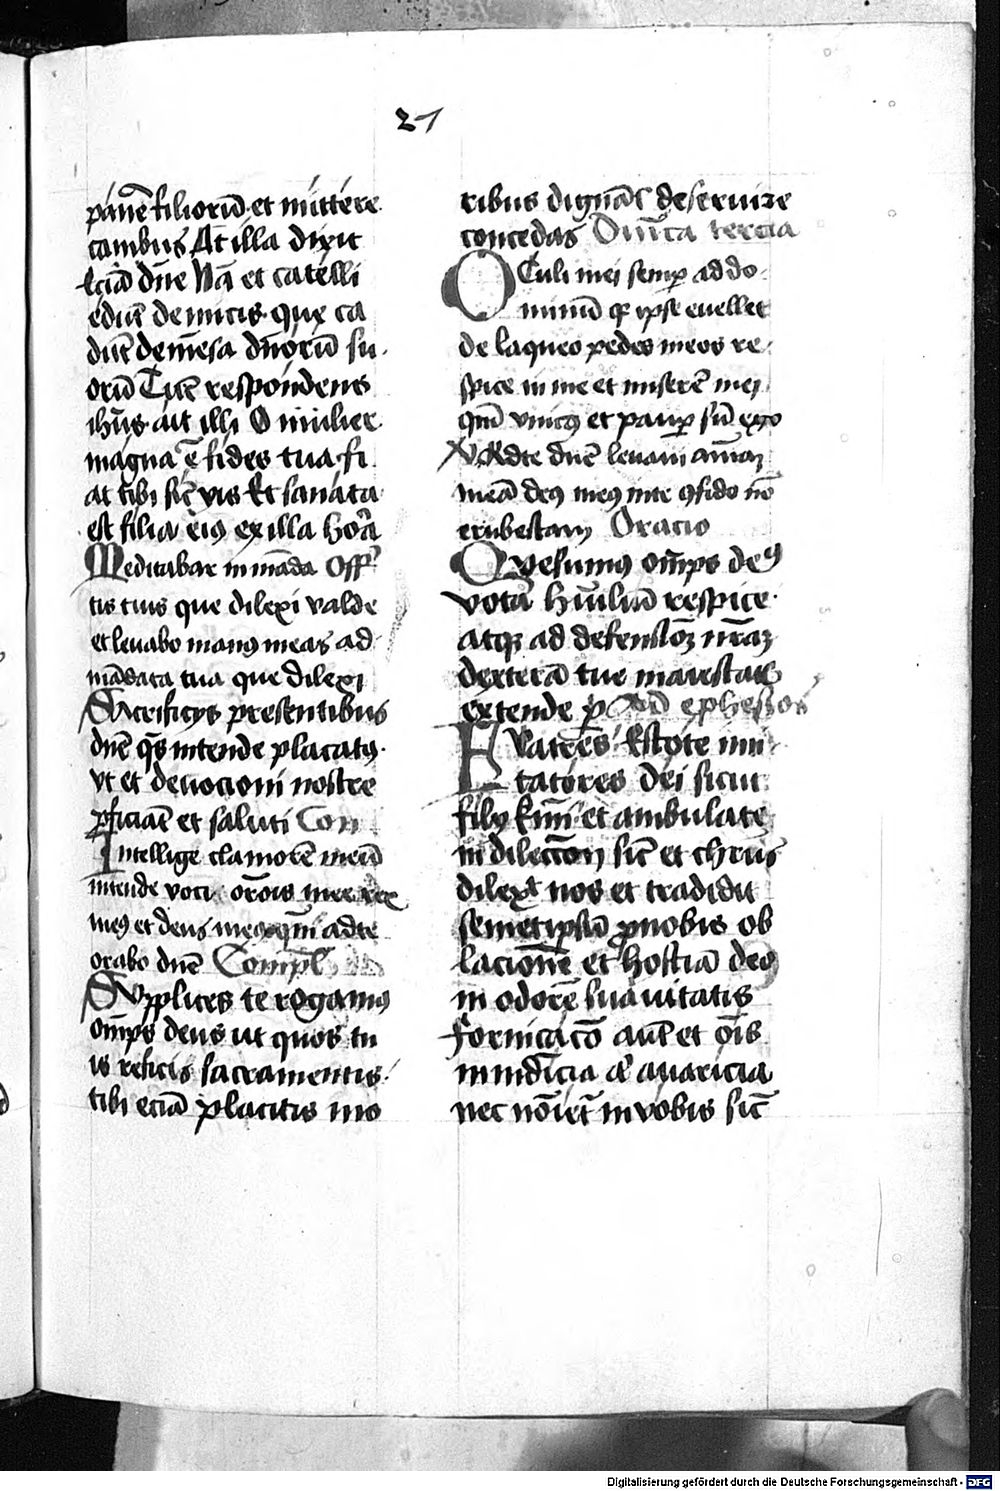 21
panē filioꝝ et mittere
canibus At illa dixit
Eciā dn̄e Nā et catelli
edūt de micis que ca
dūt de mēsa dn̄orū su
orū Tūc respondens
ihūs ait illi O mulier
magna ē fides tua fi
at tibi sic̄ vis Et sanata
est filia eius ex illa hora
Meditabar in mādatis Off
tis tuis que dilexi valde
et levabo manus meas ad
mādata tua que dilexi
Sacrificijs presentibus
dn̄e qs̄ intende placatus
vt et devocioni nostre
ꝓficiāt et saluti Con
Intellige clamorē meū
intende voci or̄ois mee rex
meus et deus meus qm̄ ad te
orabo dn̄e Compl̄
Supplices te rogamus
om̄ps deus ut quos tu
is reficis sacramentis
tibi eciā placitis mo
ribus dignāt deservire
concedas Dn̄ica tercia
OCuli mei semp̄ ad do
minū qr ipse evellet
de laqueo pedes meos re
spice in me et miserē mei
qm̄ vnicus et paup̄ sū ego
V Ad te dn̄e levavi aīam
meā deus meus in te ꝯfido nō
erubescam Oracio
Quesumus om̄ps deus
vota hūiliū respice
atqꝫ ad defensionē nr̄am
dexterā tue maiestatis
extende p̄ Ad ephesios
Fratres Estote imi
tatores dei sicut
filij kmī et ambulate
in dilectōn sic̄ et chrūs
dilexit nos et tradidit
semetipsū ꝓ nobis ob
lacionē et hostiā deo
in odorē suavitatis
Fornicacō aut̄ et om̄s
inmūdicia aut avaricia
nec noīet̄ in vobis sic̄
Digitalisierung gefördert durch die Deutsche Forschungsgemeinschaft - DFG